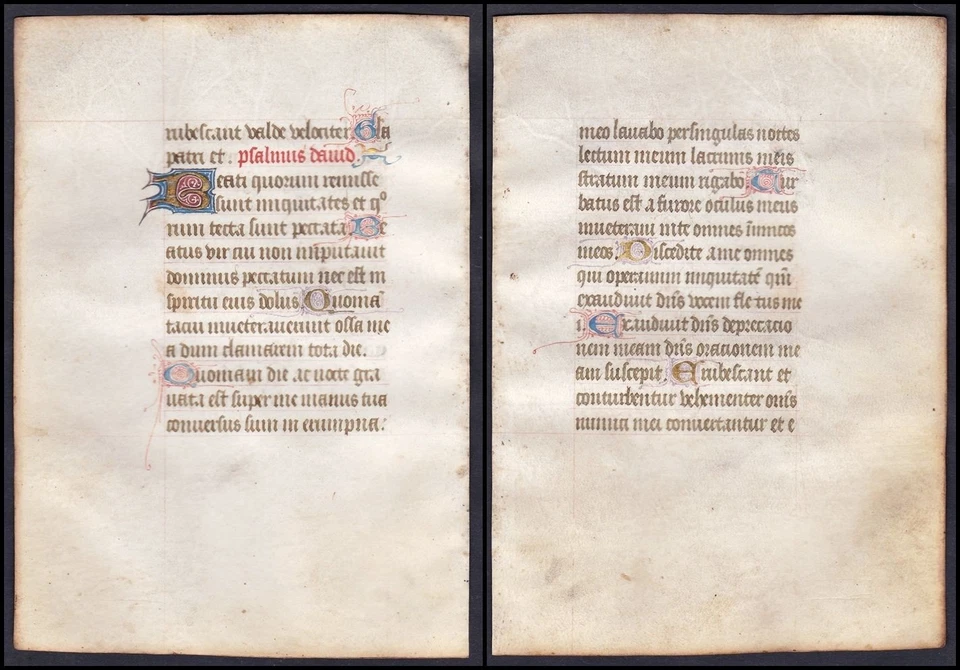 rubescant valde velociter Gła
patri et. psalmus dauid.
Beati quorum remisse
sunt iniquitates et qo
rum tecta sunt peccata Be
atus vir cui non imputauit
dominus peccatum nec est in
spiritu eius dolus Quoniā
tacui inueterauerunt ossa me
a dum clamarem tota die.
Quoniam die ac nocte gra
uata est super me manus tua
conuersus sum in erumpna:
meo lauabo persingulas noctes
lectum meum lacrimis meis
stratum meum rigabo Tur
batus est a furore oculus meus
inueteraui inte omnes inimicos
meos Discedite ame omnes
qui operamini iniquitatē qm̄
exaudiuit dn̄s vocem fletus me
i. Exaudiuit dn̄s deprecacio
nem meam dn̄s orationem me
am suscepit Erubescant et
conturbentur vehementer om̄s
inimici mei conuertantur et e